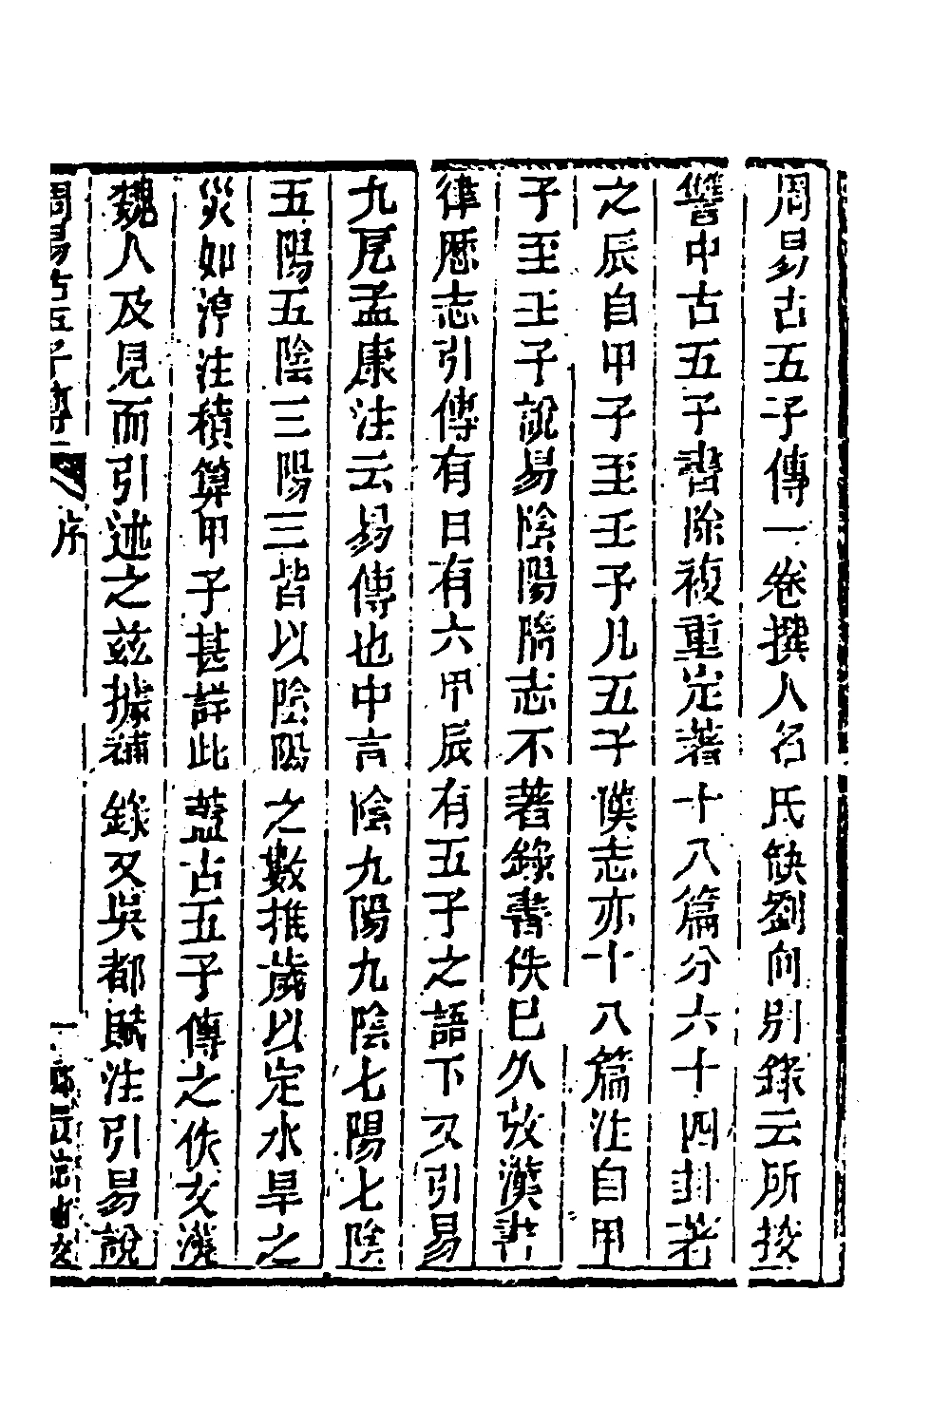 周易古五子傳一卷撰人名氏缺劉向別錄云所挍
讐中古五子書除複重定著十八篇分六十四卦著
之辰自甲子至壬子凡五子漢志亦十八篇注自甲
子至壬子說易陰陽隋志不著錄書佚已久攷漢書
律歷志引傳有日有六甲辰有五子之語下又引易
九戹孟康注云易傳也中言陰九陽九陰七陽七陰
五陽五陰三陽三皆以陰陽之數推歲以定水旱之
災如淳注積算甲子甚詳此蓋古五子傳之佚文漢
魏人及見而引述之兹據補錄又吳都賦注引易說
周易古五子傳 序 一